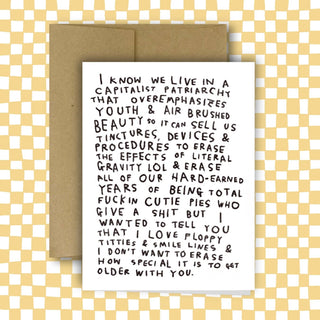 I KNOW WE LIVE IN A
CAPITALIST PATRIARCHY
THAT OVEREMPHASIZES
YOUTH & AIR BRUSHED
BEAUTY SO IT CAN SELL US
TINCTURES, DEVICES &
PROCEDURES TO ERASE
THE EFFECTS OF LITERAL
GRAVITY LOL & ERASE
ALL OF OUR HARD-EARNED
YEARS OF BEING TOTAL
FUCKIN CUTIE PIES WHO
GIVE A SHIT BUT I
WANTED TO TELL YOU
THAT I LOVE PLOPPY
TITTIES & SMILE LINES &
I DON'T WANT TO ERASE
HOW SPECIAL IT IS TO GET
OLDER WITH YOU.